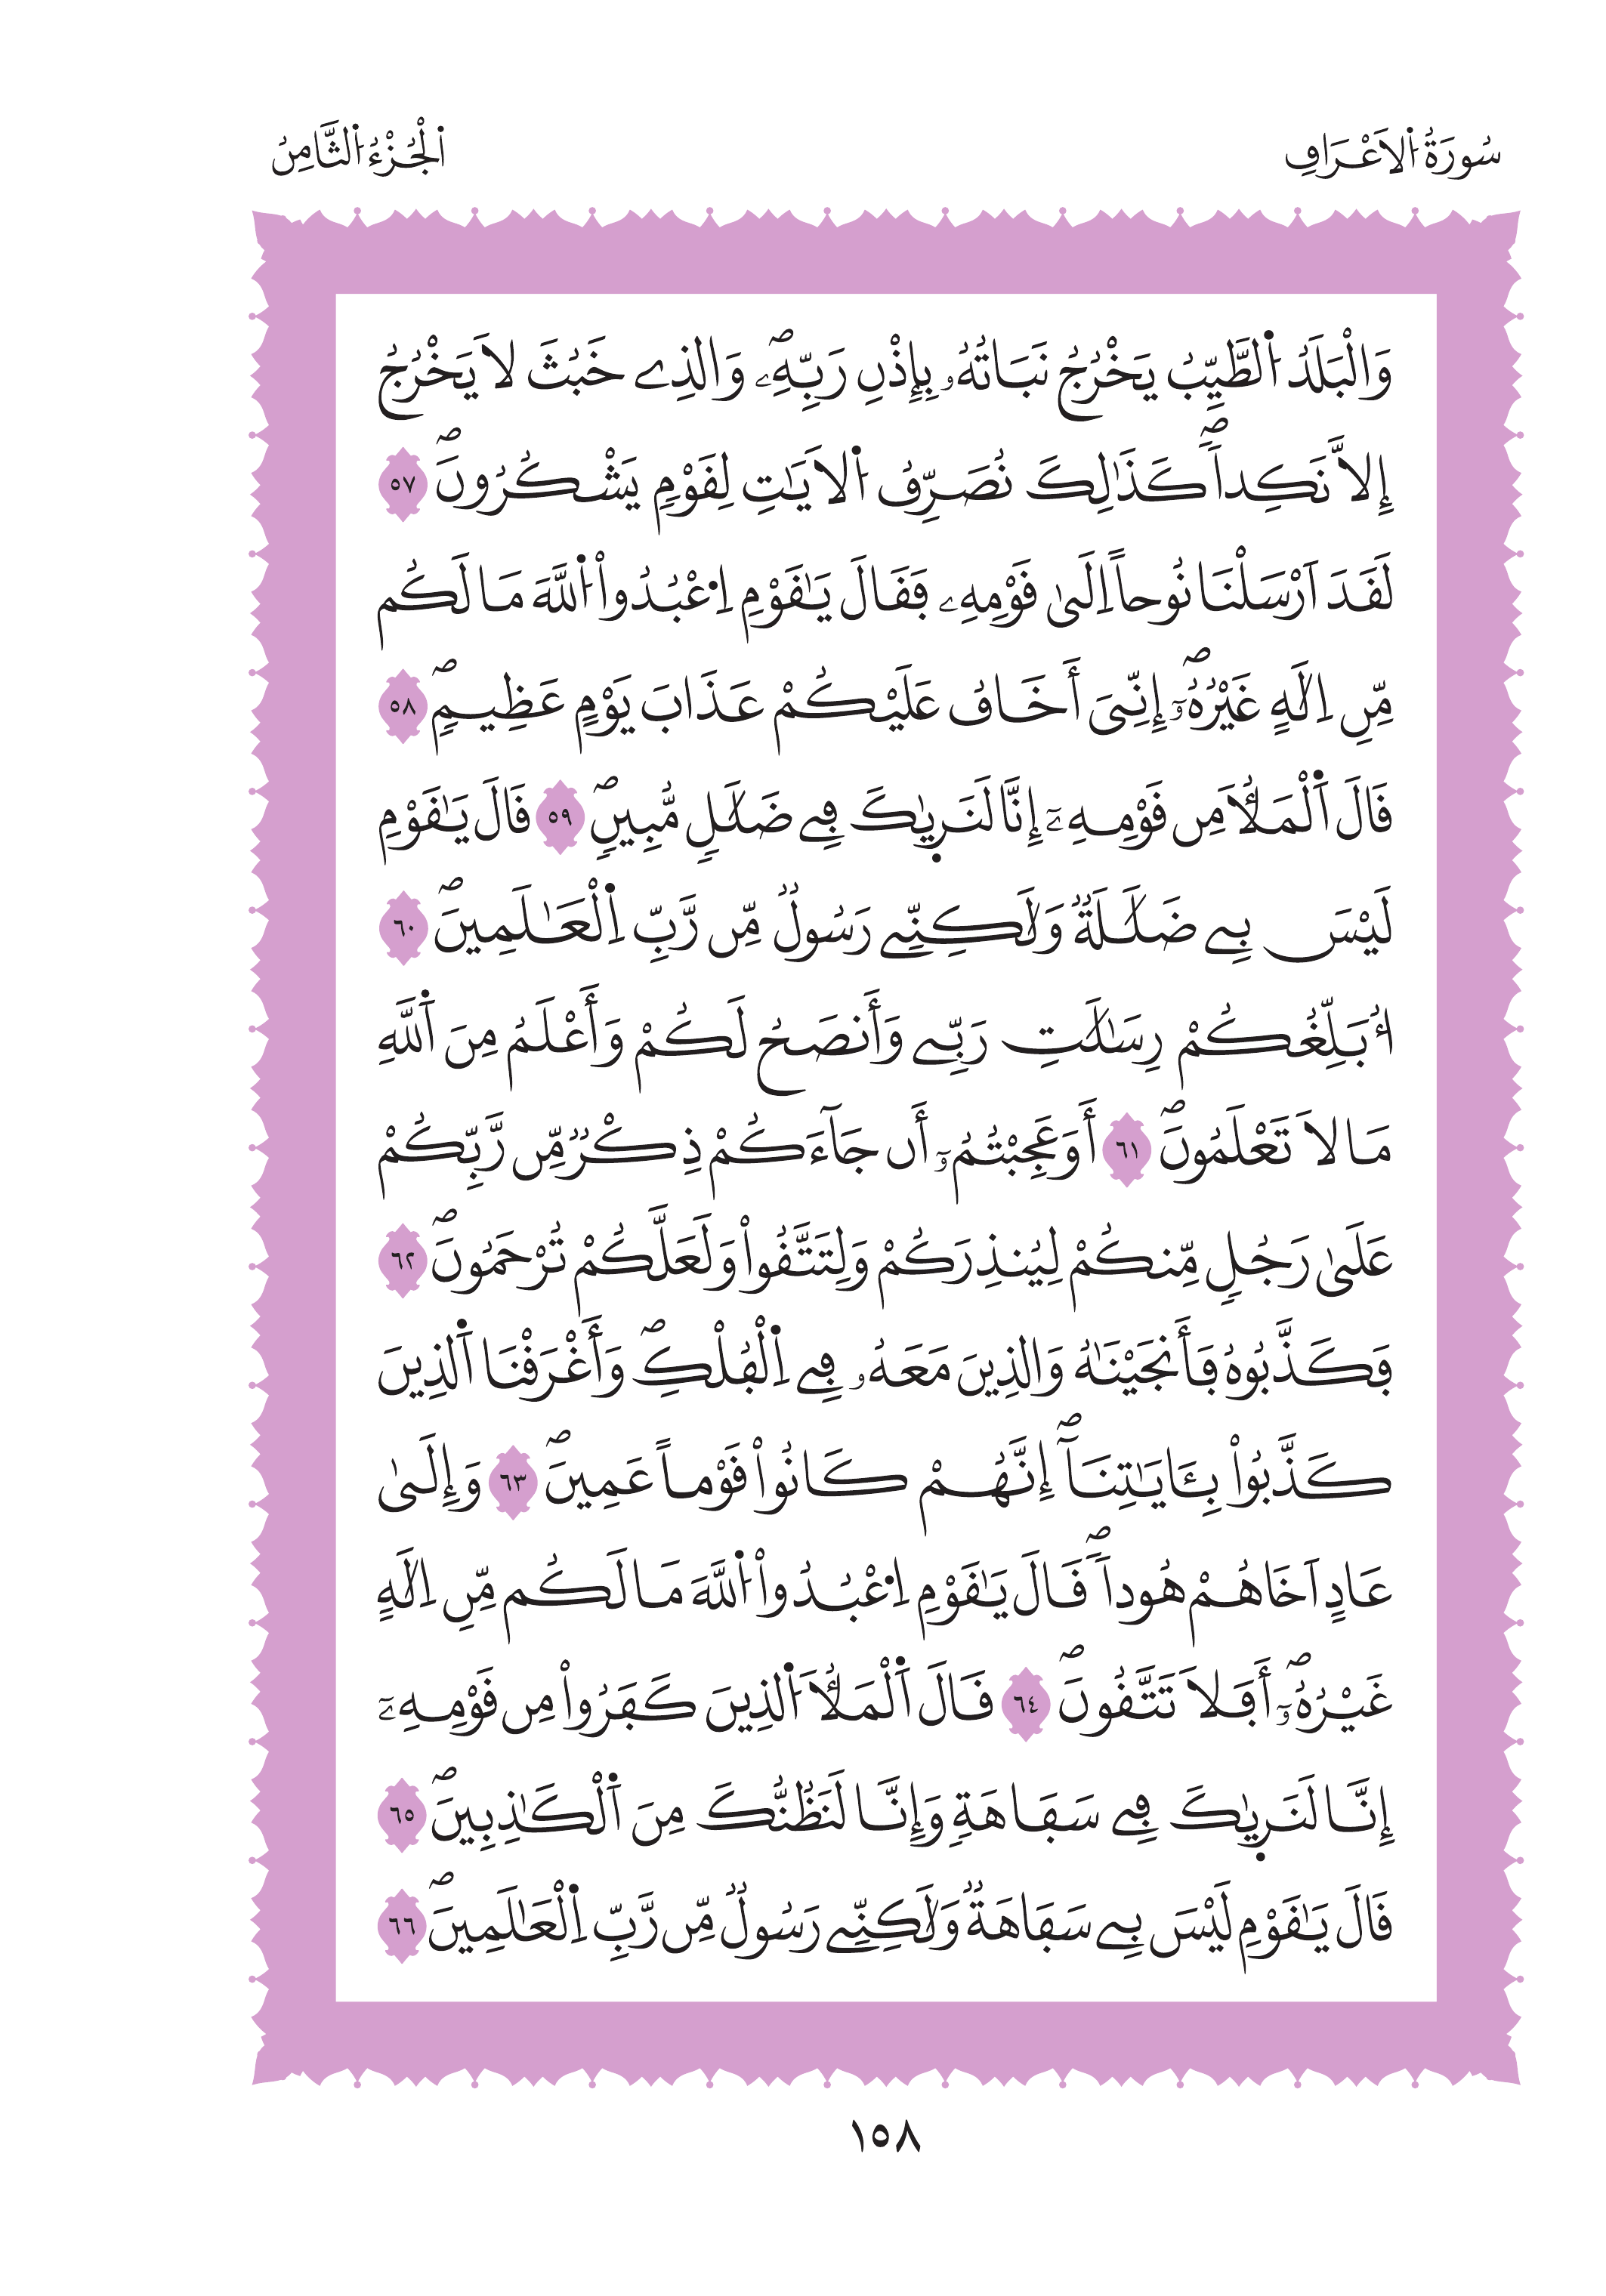 سُورَةُ اُ۬لَاعْرَافِ
اَ۬لْجُزْءُ اُ۬لثَّامِنُ
وَالْبَلَدُ اُ۬لطَّيِّبُ يَخْرُجُ نَبَاتُهُۥ بِإِذْنِ رَبِّهِۦۖ وَالذِے خَبُثَ لَا يَخْرُجُ
إِلَّا نَكِداٗۖ كَذَٰلِكَ نُصَرِّفُ اُ۬لَايَٰتِ لِقَوْمٖ يَشْكُرُونَۖ ٥٧
لَقَدَ اَرْسَلْنَا نُوحاً اِلَىٰ قَوْمِهِۦ فَقَالَ يَٰقَوْمِ اِ۟عْبُدُواْ اُ۬للَّهَ مَا لَكُم
مِّنِ اِلَٰهٍ غَيْرُهُۥٓۖ إِنِّيَ أَخَافُ عَلَيْكُمْ عَذَابَ يَوْمٍ عَظِيمٖۖ ٥٨
قَالَ اَ۬لْمَلَأُ مِن قَوْمِهِۦٓ إِنَّا لَنَرٜيٰكَ فِے ضَلَٰلٖ مُّبِينٖۖ ٥٩ قَالَ يَٰقَوْمِ
لَيْسَ بِے ضَلَٰلَةٞ وَلَٰكِنِّے رَسُولٞ مِّن رَّبِّ اِ۬لْعَٰلَمِينَۖ ٦٠
أُبَلِّغُكُمْ رِسَٰلَٰتِ رَبِّے وَأَنصَحُ لَكُمْ وَأَعْلَمُ مِنَ اَ۬للَّهِ
مَا لَا تَعْلَمُونَۖ ٦١ أَوَعَجِبْتُمُۥٓ أَن جَآءَكُمْ ذِكْرٞ مِّن رَّبِّكُمْ
عَلَىٰ رَجُلٖ مِّنكُمْ لِيُنذِرَكُمْ وَلِتَتَّقُواْ وَلَعَلَّكُمْ تُرْحَمُونَۖ ٦٢
فَكَذَّبُوهُ فَأَنجَيْنَٰهُ وَالذِينَ مَعَهُۥ فِے اِ۬لْفُلْكِۖ وَأَغْرَقْنَا اَ۬لذِينَ
كَذَّبُواْ بِـَٔايَٰتِنَآۖ إِنَّهُمْ كَانُواْ قَوْماً عَمِينَۖ ٦٣ وَإِلَىٰ
عَادٍ اَخَاهُمْ هُوداٗۖ قَالَ يَٰقَوْمِ اِ۟عْبُدُواْ اُ۬للَّهَ مَا لَكُم مِّنِ اِلَٰهٍ
غَيْرُهُۥٓۖ أَفَلَا تَتَّقُونَۖ ٦٤ قَالَ اَ۬لْمَلَأُ اُ۬لذِينَ كَفَرُواْ مِن قَوْمِهِۦٓ
إِنَّا لَنَرٜيٰكَ فِے سَفَاهَةٖ وَإِنَّا لَنَظُنُّكَ مِنَ اَ۬لْكَٰذِبِينَۖ ٦٥
قَالَ يَٰقَوْمِ لَيْسَ بِے سَفَاهَةٞ وَلَٰكِنِّے رَسُولٞ مِّن رَّبِّ اِ۬لْعَٰلَمِينَۖ ٦٦
١٥٨